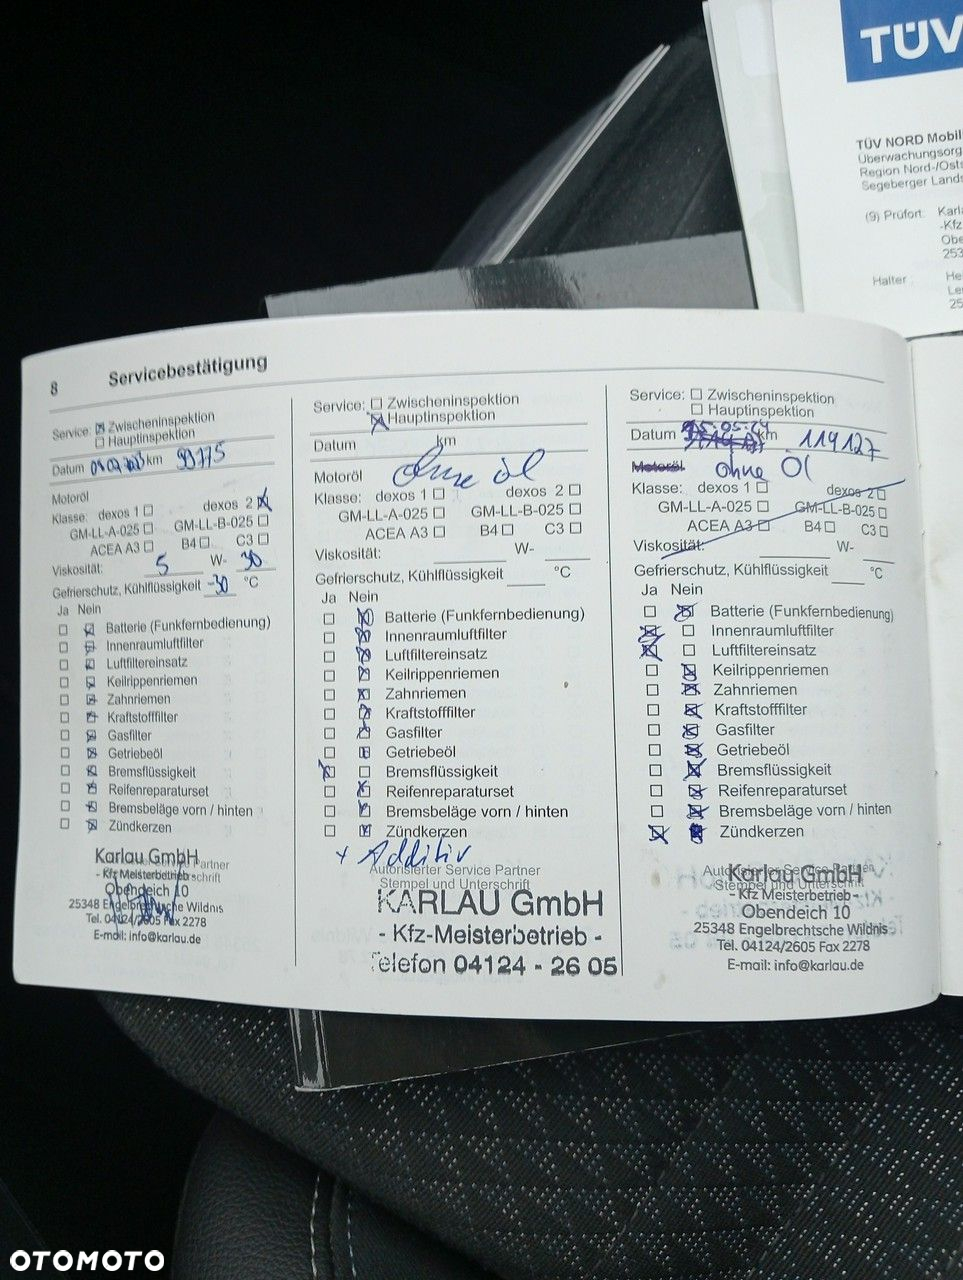 TÜV
TÜV NORD Mobil
Überwachungsorg
Region Nord-/Osts
Segeberger Lands
(9) Prüfort: Karla
-Kfz
Obe
253
Halter : He
Le
25
8 Servicebestätigung
Service: Zwischeninspektion
Hauptinspektion
Datum km 99775
Motoröl
Klasse: dexos 1 dexos 2
GM-LL-A-025 GM-LL-B-025
ACEA A3 B4 C3
Viskosität: 5 W- 30
Gefrierschutz, Kühlflüssigkeit -30 °C
Ja Nein
Batterie (Funkfernbedienung)
Innenraumluftfilter
Luftfiltereinsatz
Keilrippenriemen
Zahnriemen
Kraftstofffilter
Gasfilter
Getriebeöl
Bremsflüssigkeit
Reifenreparaturset
Bremsbeläge vorn / hinten
Zündkerzen
Karlau GmbH
- Kfz Meisterbetrieb -
Obendeich 10
25348 Engelbrechtsche Wildnis
Tel. 04124/2605 Fax 2278
E-mail: info@karlau.de
Service: Zwischeninspektion
Hauptinspektion
Datum km
Motoröl ohne öl
Klasse: dexos 1 dexos 2
GM-LL-A-025 GM-LL-B-025
ACEA A3 B4 C3
Viskosität: W-
Gefrierschutz, Kühlflüssigkeit °C
Ja Nein
Batterie (Funkfernbedienung)
Innenraumluftfilter
Luftfiltereinsatz
Keilrippenriemen
Zahnriemen
Kraftstofffilter
Gasfilter
Getriebeöl
Bremsflüssigkeit
Reifenreparaturset
Bremsbeläge vorn / hinten
Zündkerzen
+ Additiv
Autorisierter Service Partner
Stempel und Unterschrift
KARLAU GmbH
- Kfz-Meisterbetrieb -
Telefon 04124 - 26 05
Service: Zwischeninspektion
Hauptinspektion
15.05.24
Datum km 119127
Motoröl ohne Öl
Klasse: dexos 1 dexos 2
GM-LL-A-025 GM-LL-B-025
ACEA A3 B4 C3
Viskosität: W-
Gefrierschutz, Kühlflüssigkeit °C
Ja Nein
Batterie (Funkfernbedienung)
Innenraumluftfilter
Luftfiltereinsatz
Keilrippenriemen
Zahnriemen
Kraftstofffilter
Gasfilter
Getriebeöl
Bremsflüssigkeit
Reifenreparaturset
Bremsbeläge vorn / hinten
Zündkerzen
Autorisierter Service Partner
Stempel und Unterschrift
Karlau GmbH
- Kfz Meisterbetrieb -
Obendeich 10
25348 Engelbrechtsche Wildnis
Tel. 04124/2605 Fax 2278
E-mail: info@karlau.de
OTOMOTO